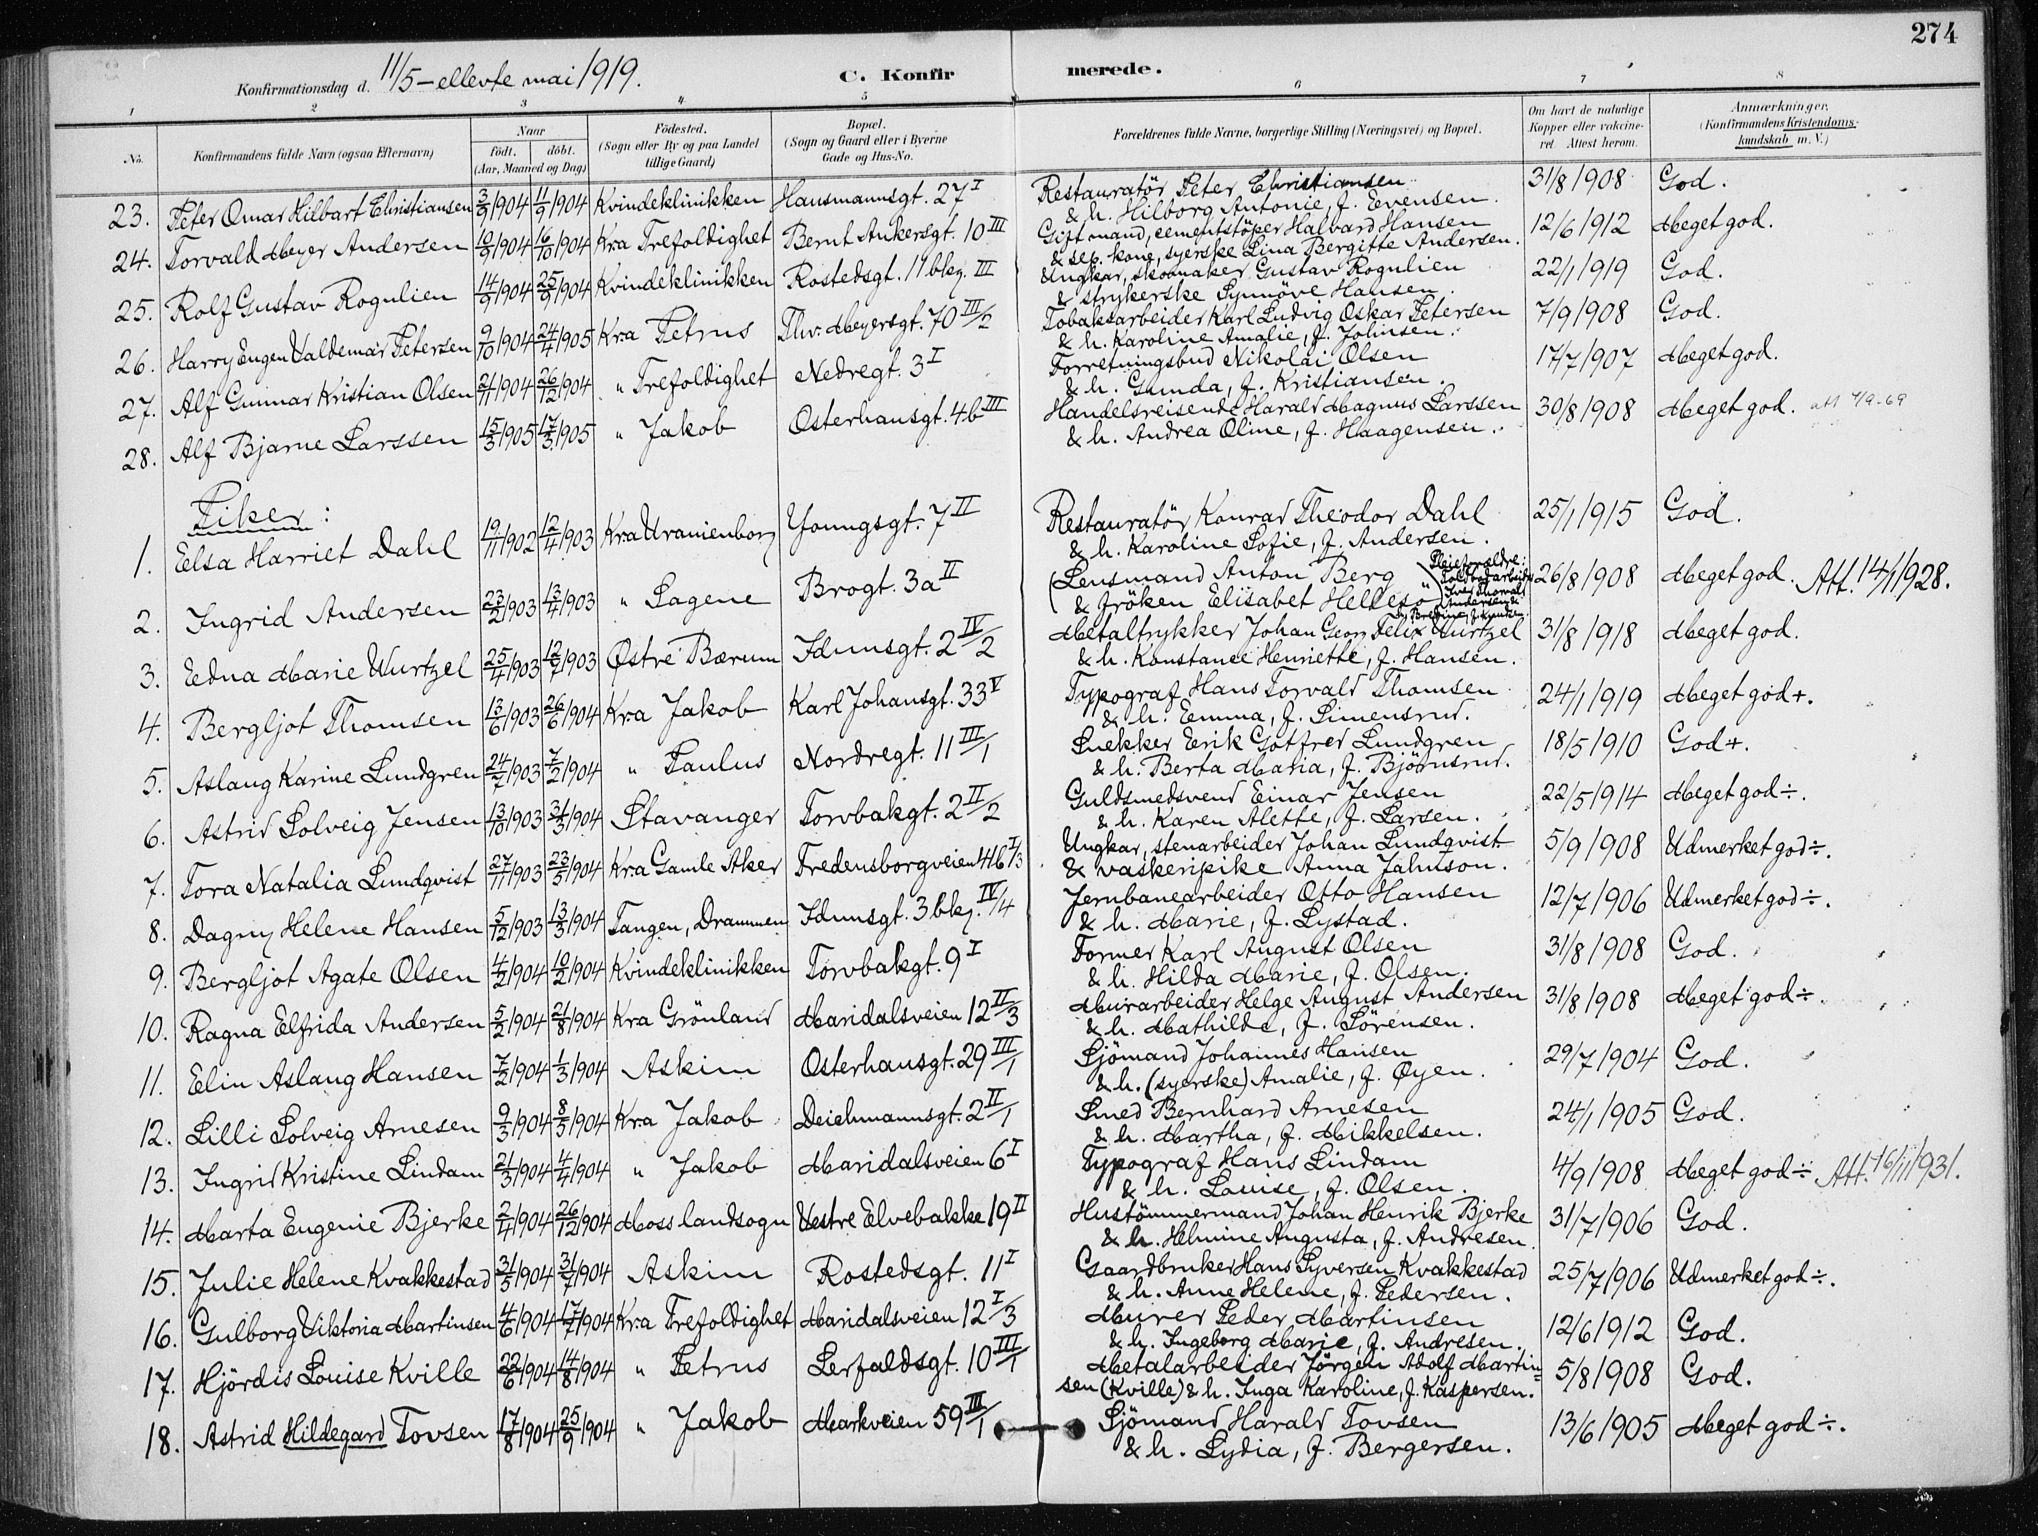 274
Konfirmationsdag d. 11/5 - ellevte mai 1919.
C. Konfirmerede.
1 2 3 4 5 6 7 8
No. Konfirmandens fulde Navn (ogsaa Efternavn) Naar født. døbt. (Aar, Maaned og Dag) Fødested. (Sogn eller By og paa Landet tillige Gaard) Bopæl. (Sogn og Gaard eller i Byerne Gade og Hus-No. Forældrenes fulde Navne, borgerlige Stilling (Næringsvei) og Bopæl. Om havt de naturlige Kopper eller vakcineret. Attest herom. Anmærkninger. (Konfirmandens Kristendomskundskab m. V.)
23. Peter Omar Hilbart Christiansen 3/9 1904 11/9 1904 Kvindeklinikken Hausmannsgt. 27 I Restauratör Peter Christiansen 31/8 1908 God.
& h. Hilborg Antonie, f. Evensen.
24. Torvald Meyer Andersen 19/9 1904 16/10 1904 Kr.a Trefoldighet Bernt Ankersgt. 10 III Gift mand, cementstöper Halvard Hansen 12/6 1912 Meget god.
& sep. kone, syerske Lina Bergitte Andersen.
25. Rolf Gustav Rogulien 14/9 1904 25/9 1904 Kvindeklinikken Rostedsgt. 11 bkg. III Ungkar, skomaker Gustav Rogulien 22/1 1919 God.
& strykerske Synnöve Hansen.
26. Harry Eugen Valdemar Petersen 9/10 1904 24/4 1905 Kr.a Petrus Thv. Meyersgt. 70 III/2 Tobaksarbeider Karl Ludvig Oskar Petersen 7/9 1908 God.
& h. Karoline Amalie, f. Johnsen.
27. Alf Gunnar Kristian Olsen 21/11 1904 26/12 1904 " Trefoldighet Nedregt. 3 I Forretningsbud Nikolai Olsen 17/7 1907 Meget god.
& h. Gunda, f. Kristiansen.
28. Alf Bjarne Larssen 15/3 1905 17/3 1905 " Jakob Osterhausgt. 4b III Handelsreisende Harald Magnus Larssen 30/8 1908 Meget god. att 4/9-69
& h. Andrea Oline, f. Haagensen.
Piker:
1. Elsa Harriet Dahl 19/11 1902 12/4 1903 Kr.a Uranienborg Youngsgt. 7 II Restauratör Konrad Theodor Dahl 25/1 1915 God.
& h. Karoline Sofie, f. Andersen.
2. Ingrid Andersen 23/2 1903 13/4 1903 " Sagene Brogt. 3a II (Lensmand Anton Berg 26/8 1908 Meget god. Att. 14/1 1928.
& fröken Elisabet Helleso) Pleieforældre: Toldbodarbeider Iver Thorvald Andersen &
3. Edna Marie Wurtzel 25/4 1903 12/7 1903 Østre Bærum Idunsgt. 2 IV/2 Metaltrykker Johan Georg Felix Wurtzel 31/8 1918 Meget god.
& h. Konstance Henriette, f. Hansen.
4. Bergljot Thomsen 13/6 1903 26/6 1904 Kr.a Jakob Karl Johansgt. 33 V Typograf Hans Torvald Thomsen 24/1 1919 Meget god +.
& h. Emma, f. Simensrud.
5. Aslaug Karine Lundgren 24/7 1903 7/2 1904 " Paulus Nordregt. 11 III/1 Snekker Erik Gotfred Lundgren 18/5 1910 God +.
& h. Berta Maria, f. Bjørnsrud.
6. Astrid Solveig Jensen 13/10 1903 31/3 1904 Stavanger Torvbakgt. 2 II/2 Guldsmedsvend Einar Jensen 22/5 1914 Meget god ÷.
& h. Karen Alette, f. Larsen.
7. Tora Natalia Lundqvist 27/11 1903 23/5 1904 Kr.a Gamle Aker Fredensborgveien 46 I/3 Ungkar, stenarbeider Johan Lundqvist 5/9 1908 Udmerket god ÷.
& vaskeripike Anna Jahnson.
8. Dagny Helene Hansen 5/12 1903 13/3 1904 Tangen, Drammen Idunsgt. 3 bkg. IV/4 Jernbanearbeider Otto Hansen 12/7 1906 Udmerket god ÷.
& h. Marie, f. Lystad.
9. Bergljot Agate Olsen 4/2 1904 10/2 1904 Kvindeklinikken Torvbakgt. 9 I Former Karl August Olsen 31/8 1908 God.
& h. Hilda Marie, f. Olsen.
10. Ragna Elfrida Andersen 5/2 1904 21/8 1904 Kr.a Grönland Maridalsveien 12 II/3 Murarbeider Helge August Andersen 31/8 1908 Meget god ÷.
& h. Mathilde, f. Sörensen.
11. Elin Aslaug Hansen 7/2 1904 1/3 1904 Askim Osterhausgt. 29 III/1 Sjömand Johannes Hansen 29/7 1904 God.
& h. (syerske) Amalie, f. Øyen.
12. Lilli Solveig Arnesen 9/3 1904 8/5 1904 Kr.a Jakob Deichmannsgt. 2 II/1 Smed Bernhard Arnesen 24/1 1905 God.
& h. Martha, f. Mikkelsen.
13. Ingrid Kristine Lindam 21/3 1904 4/4 1904 " Jakob Maridalsveien 6 I Typograf Hans Lindam 4/9 1908 Meget god ÷ Att. 16/11 1931.
& h. Louise, f. Olsen.
14. Marta Eugenie Bjerke 2/4 1904 26/12 1904 Moss landsogn Vestre Elvebakke 19 II Hustömmermand Johan Henrik Bjerke 31/7 1906 God.
& h. Helmine Augusta, f. Andresen.
15. Julie Helene Kvakkestad 31/5 1904 31/7 1904 Askim Rostedsgt. 11 I Gaardbruker Hans Syversen Kvakkestad 25/7 1906 Udmerket god ÷.
& h. Anne Helene, f. Pedersen.
16. Gulborg Viktoria Martinsen 4/6 1904 17/7 1904 Kr.a Trefoldighet Maridalsveien 12 I/3 Murer Peder Martinsen 12/6 1912 God.
& h. Ingeborg Marie, f. Andresen.
17. Hjördis Louise Kville 22/6 1904 14/8 1904 " Petrus Lerfaldsgt. 10 III/1 Metalarbeider Jörgen Adolf Martin= 5/8 1908 God.
sen (Kville) & h. Inga Karoline, f. Kaspersen.
18. Astrid Hildegard Tovsen 17/8 1904 25/9 1904 " Jakob Markveien 59 III/1 Sjömand Harald Tovsen 13/6 1905 Meget god ÷.
& h. Lydia, f. Bergersen.